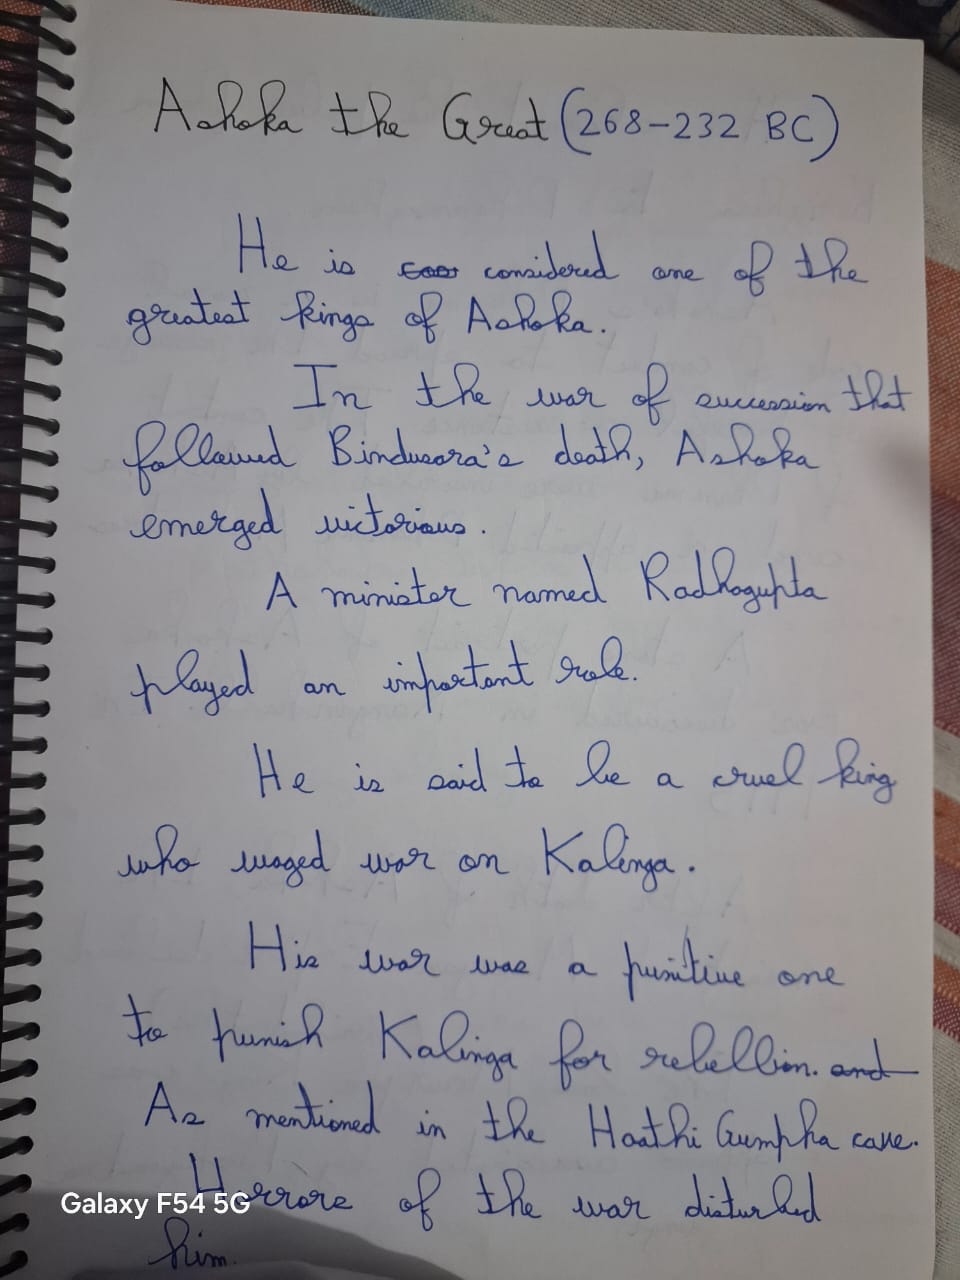 Ashoka the Great (268-232 BC)
He is considered one of the
greatest kings of Ashoka.
In the war of succession that
followed Bindusara's death, Ashoka
emerged victorious.
A minister named Radhagupta
played an important role.
He is said to be a cruel king
who waged war on Kalinga.
His war was a punitive one
to punish Kalinga for rebellion. and
As mentioned in the Haathi Gumpha cave.
Horrors of the war disturbed
him.
Galaxy F54 5G